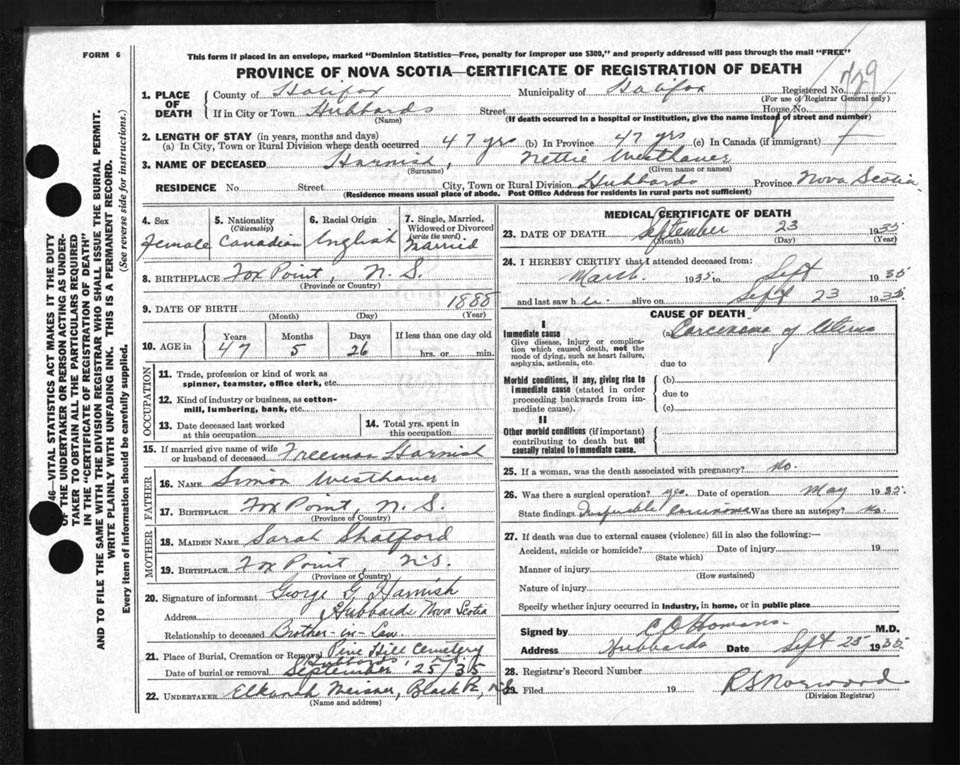 FORM 6
This form if placed in an envelope, marked "Dominion Statistics—Free, penalty for improper use $300," and properly addressed will pass through the mail "FREE"
PROVINCE OF NOVA SCOTIA—CERTIFICATE OF REGISTRATION OF DEATH
Registered No. 729
(For use of Registrar General only)
1. PLACE OF DEATH
County of Halifax Municipality of Halifax
If in City or Town Hubbards Street House No.
(Name) (If death occurred in a hospital or institution, give the name instead of street and number)
2. LENGTH OF STAY (in years, months and days)
(a) In City, Town or Rural Division where death occurred 47 yrs (b) In Province 47 yrs (c) In Canada (if immigrant)
3. NAME OF DECEASED Harnish, Nettie Westhaver
(Surname) (Given name or names)
RESIDENCE No. Street City, Town or Rural Division Hubbards Province Nova Scotia
(Residence means usual place of abode. Post Office Address for residents in rural parts not sufficient)
4. Sex
Female
5. Nationality
(Citizenship)
Canadian
6. Racial Origin
English
7. Single, Married, Widowed or Divorced
(write the word)
Married
8. BIRTHPLACE Fox Point, N.S.
(Province or Country)
9. DATE OF BIRTH 1888
(Month) (Day) (Year)
10. AGE in
Years Months Days If less than one day old
47 5 26 hrs. or min.
OCCUPATION
11. Trade, profession or kind of work as
spinner, teamster, office clerk, etc.
12. Kind of industry or business, as cotton-
mill, lumbering, bank, etc.
13. Date deceased last worked
at this occupation
14. Total yrs. spent in
this occupation
15. If married give name of wife
or husband of deceased Freeman Harnish
FATHER
16. NAME Simon Westhaver
17. BIRTHPLACE Fox Point, N.S.
(Province or Country)
MOTHER
18. MAIDEN NAME Sarah Shatford
19. BIRTHPLACE Fox Point, N.S.
(Province or Country)
20. Signature of informant George G. Harnish
Address Hubbards Nova Scotia
Relationship to deceased Brother-in-Law
21. Place of Burial, Cremation or Removal Pine Hill Cemetery
Hubbards
Date of burial or removal September 25/35
22. UNDERTAKER Elkanah Meisner, Black Pt., N.S.
(Name and address)
MEDICAL CERTIFICATE OF DEATH
23. DATE OF DEATH September 23 1935
(Month) (Day) (Year)
24. I HEREBY CERTIFY that I attended deceased from:
March 1935 to Sept 1935
and last saw her alive on Sept 23 1935
CAUSE OF DEATH
I
Immediate cause
Give disease, injury or complica-
tion which caused death, not the
mode of dying, such as heart failure,
asphyxia, asthenia, etc.
(a) Carcinoma of Uterus
due to
Morbid conditions, if any, giving rise to
immediate cause (stated in order
proceeding backwards from im-
mediate cause).
(b)
due to
(c)
II
Other morbid conditions (if important)
contributing to death but not
causally related to immediate cause.
25. If a woman, was the death associated with pregnancy? No.
26. Was there a surgical operation? yes. Date of operation May 1935.
State findings Inoperable carcinoma Was there an autopsy? No.
27. If death was due to external causes (violence) fill in also the following:—
Accident, suicide or homicide? Date of injury 19
(State which)
Manner of injury
(How sustained)
Nature of injury
Specify whether injury occurred in industry, in home, or in public place
Signed by M.D.
Address Hubbards Date Sept 25 1935
28. Registrar's Record Number
29. Filed 19 R S Norwood
(Division Registrar)
46—VITAL STATISTICS ACT MAKES IT THE DUTY
OF THE UNDERTAKER OR PERSON ACTING AS UNDER-
TAKER TO OBTAIN ALL THE PARTICULARS REQUIRED
IN THE "CERTIFICATE OF REGISTRATION OF DEATH"
AND TO FILE THE SAME WITH THE DIVISION REGISTRAR WHO SHALL ISSUE THE BURIAL PERMIT.
WRITE PLAINLY WITH UNFADING INK. THIS IS A PERMANENT RECORD.
Every item of information should be carefully supplied. (See reverse side for instructions.)